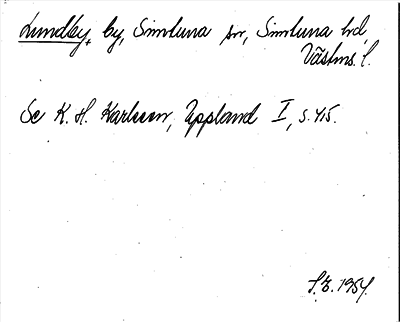 Lundby, by, Simtuna sn, Simtuna hd,
Västms. l.
Se K. H. Karlsson, Uppland I, s. 415.
1954.